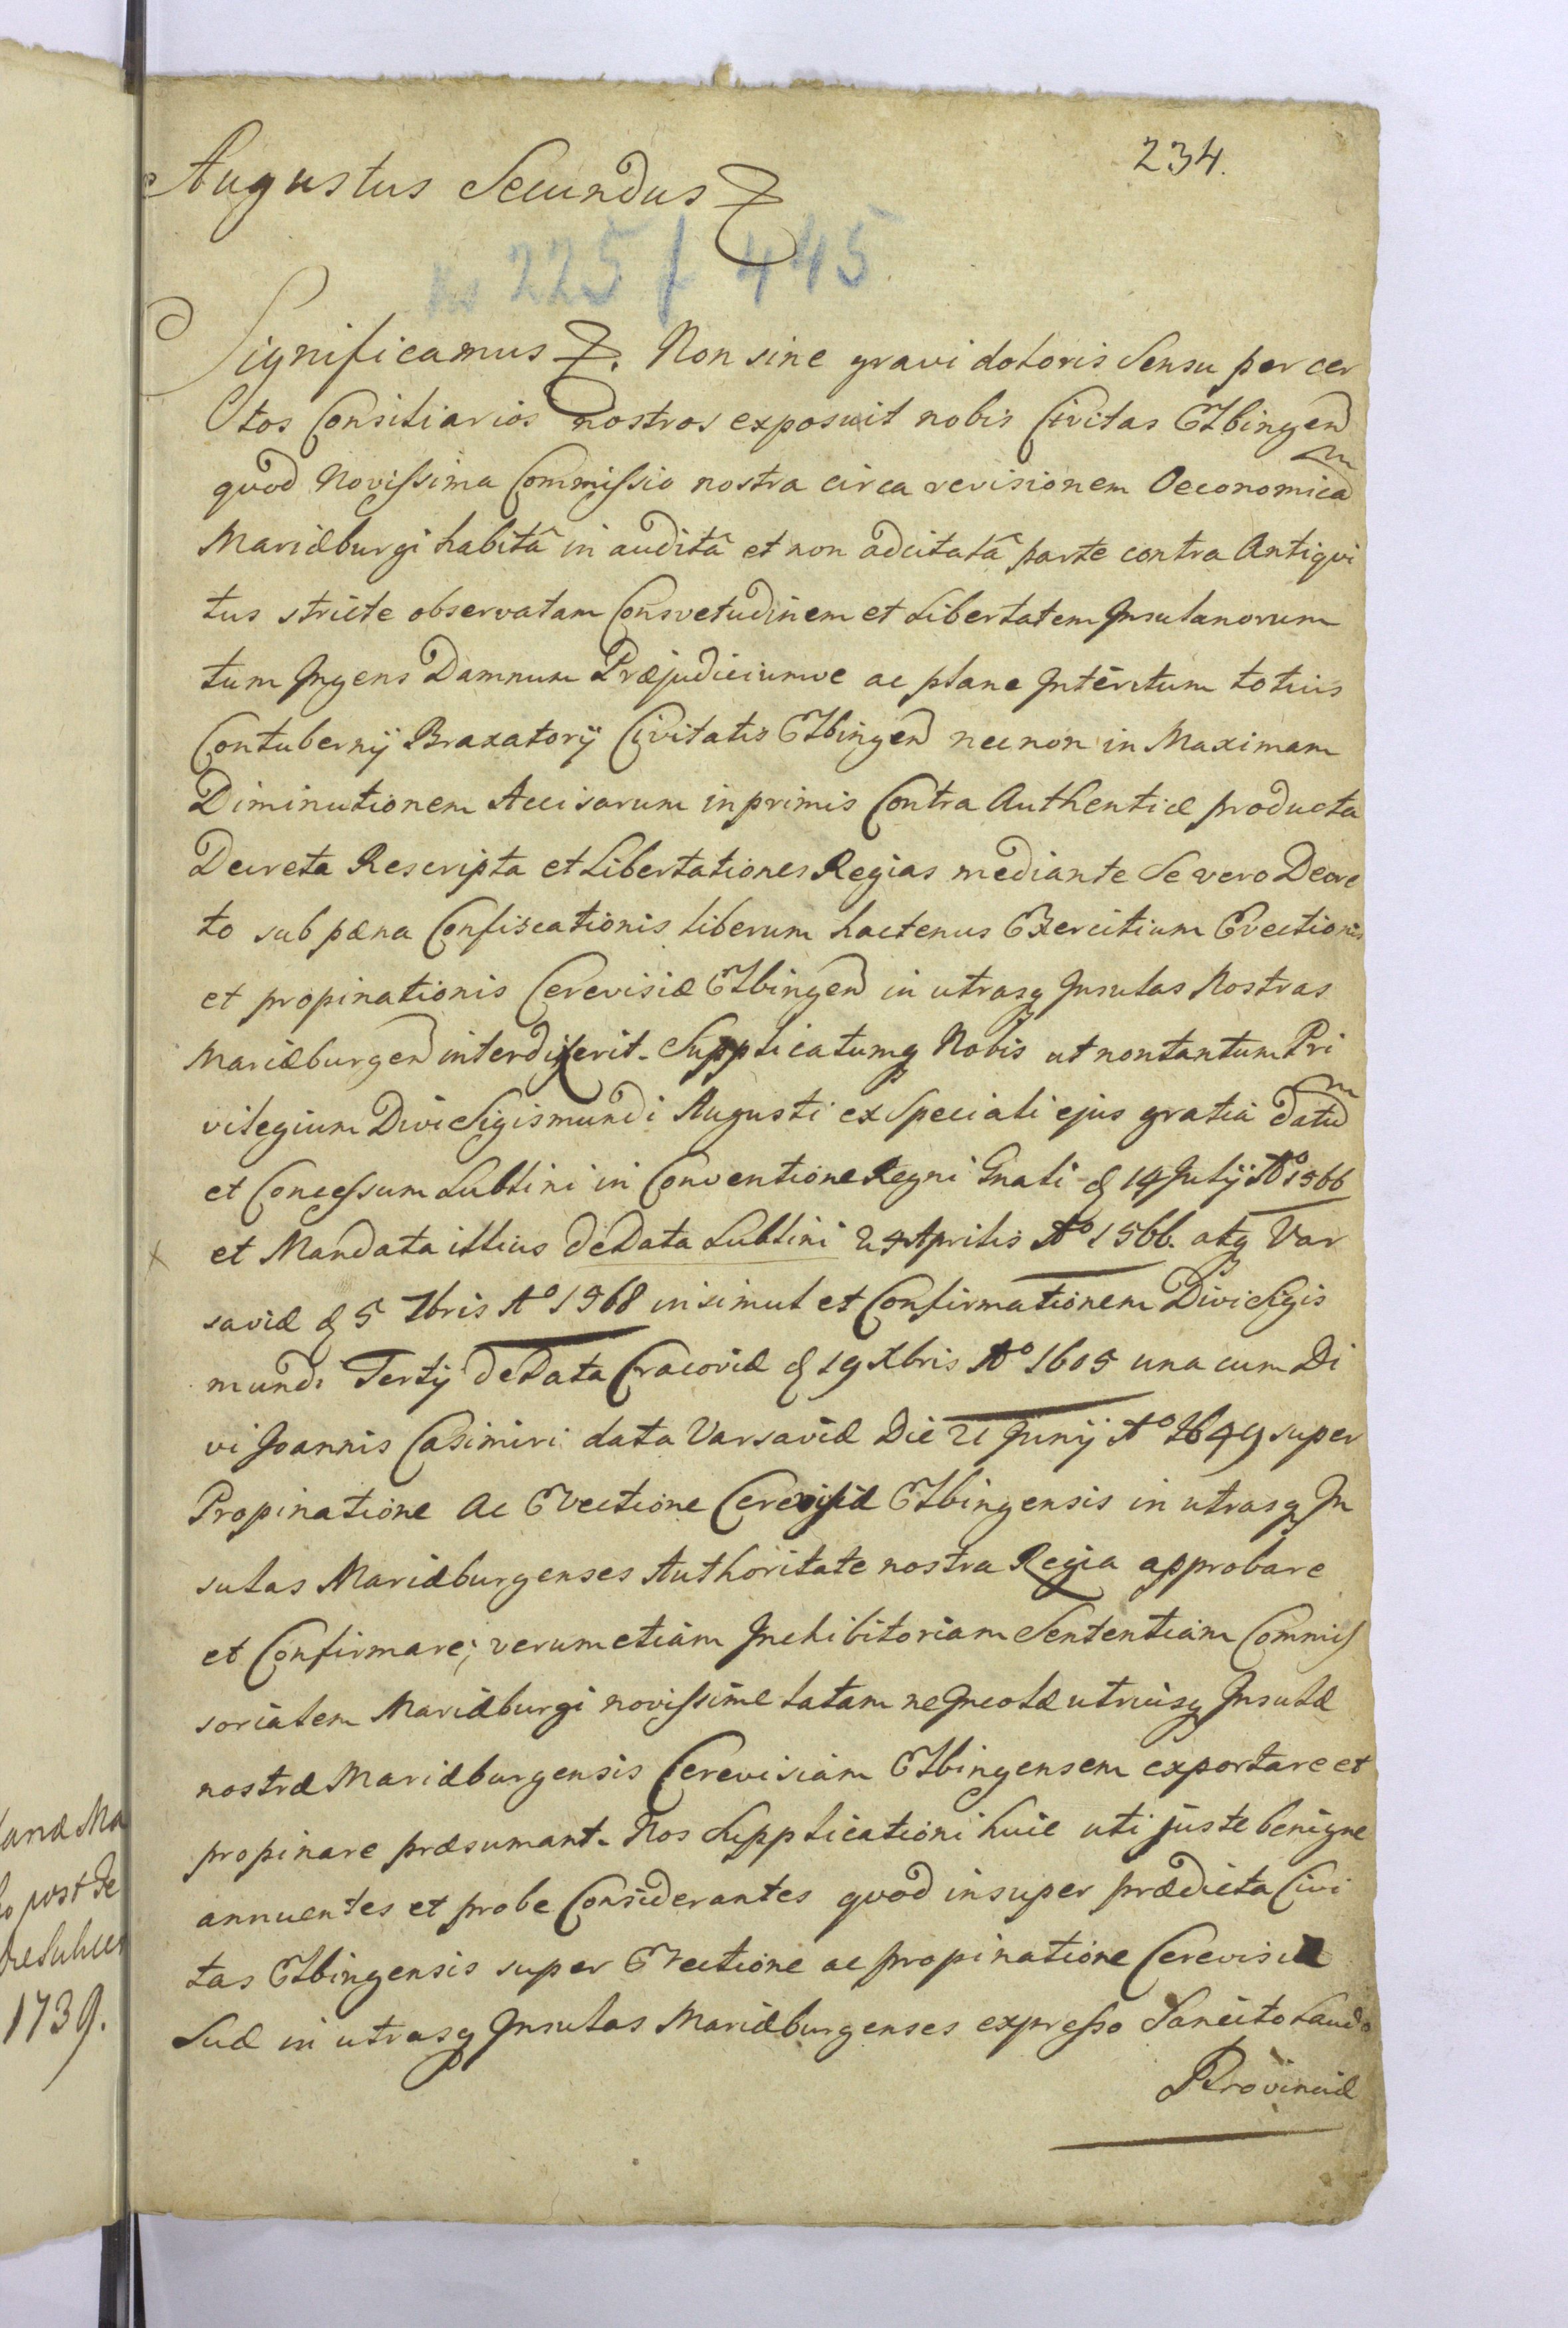 234.
Augustus Secundus
225 f 445
Significamus. Non sine gravi doloris Sensu per cer
tos Consiliarios nostros exposuit nobis Civitas Elbingen
quod Novissima Commissio nostra circa revisionem Oeconomica
Mariæburgi habitâ in auditâ et non adcitatâ parte contra Antiqvi
tus stricte observatam Consvetudinem et Libertatem Insulanorum
tum Ingens Damnum Præjudiciumve ac plane Interitum totius
Contubernij Braxatorij Civitatis Elbingen nec non in Maximam
Diminutionem Accisarum inprimis Contra Authenticæ producta
Decreta Rescripta et Libertationes Regias mediante Severo Decre
to sub pæna Confiscationis liberum hactenus Exercitium Evectionis
et propinationis Cerevisiæ Elbingen in utrasq Insulas Nostras
Mariæburgen interdixerit. Supplicatumq Nobis ut non tantum Pri
vilegium Divi Sigismundi Augusti ex Speciali ejus gratiâ datu
et Concessum Lublini in Conventione Regni Gnali d 14 Julij Aº 1566
x et Mandata illius de Data Lublini 24 Aprilis Aº 1566. atq Var
saviæ d 5 7bris Aº 1568 insimul et Confirmationem Divi Sigis
mundi Tertij de Data Cracoviæ d 19 Xbris Aº 1605 una cum Di
vi Joannis Casimiri data Varsaviæ Die 21 Junij Aº 1649 super
Propinatione ac Evectione Cerevisiæ Elbingensis in utrasq In
sulas Mariæburgenses Authoritate nostra Regia approbare
et Confirmare; verum etiam Inhibitoriam Sententiam Commis
sorialem Mariæburgi novissime latam ne Incolæ utriusq Insulæ
nostræ Mariæburgensis Cerevisiam Elbingensem exportare et
propinare præsumant. Nos Supplicationi huic uti juste benigne
annuentes et probe Considerantes quod insuper prædicta Civi
tas Elbingensis super Evectione ac propinatione Cerevisiæ
Suæ in utrasq Insulas Mariæburgenses expresso Sancito Laudo
Provinciæ
post de
1739.